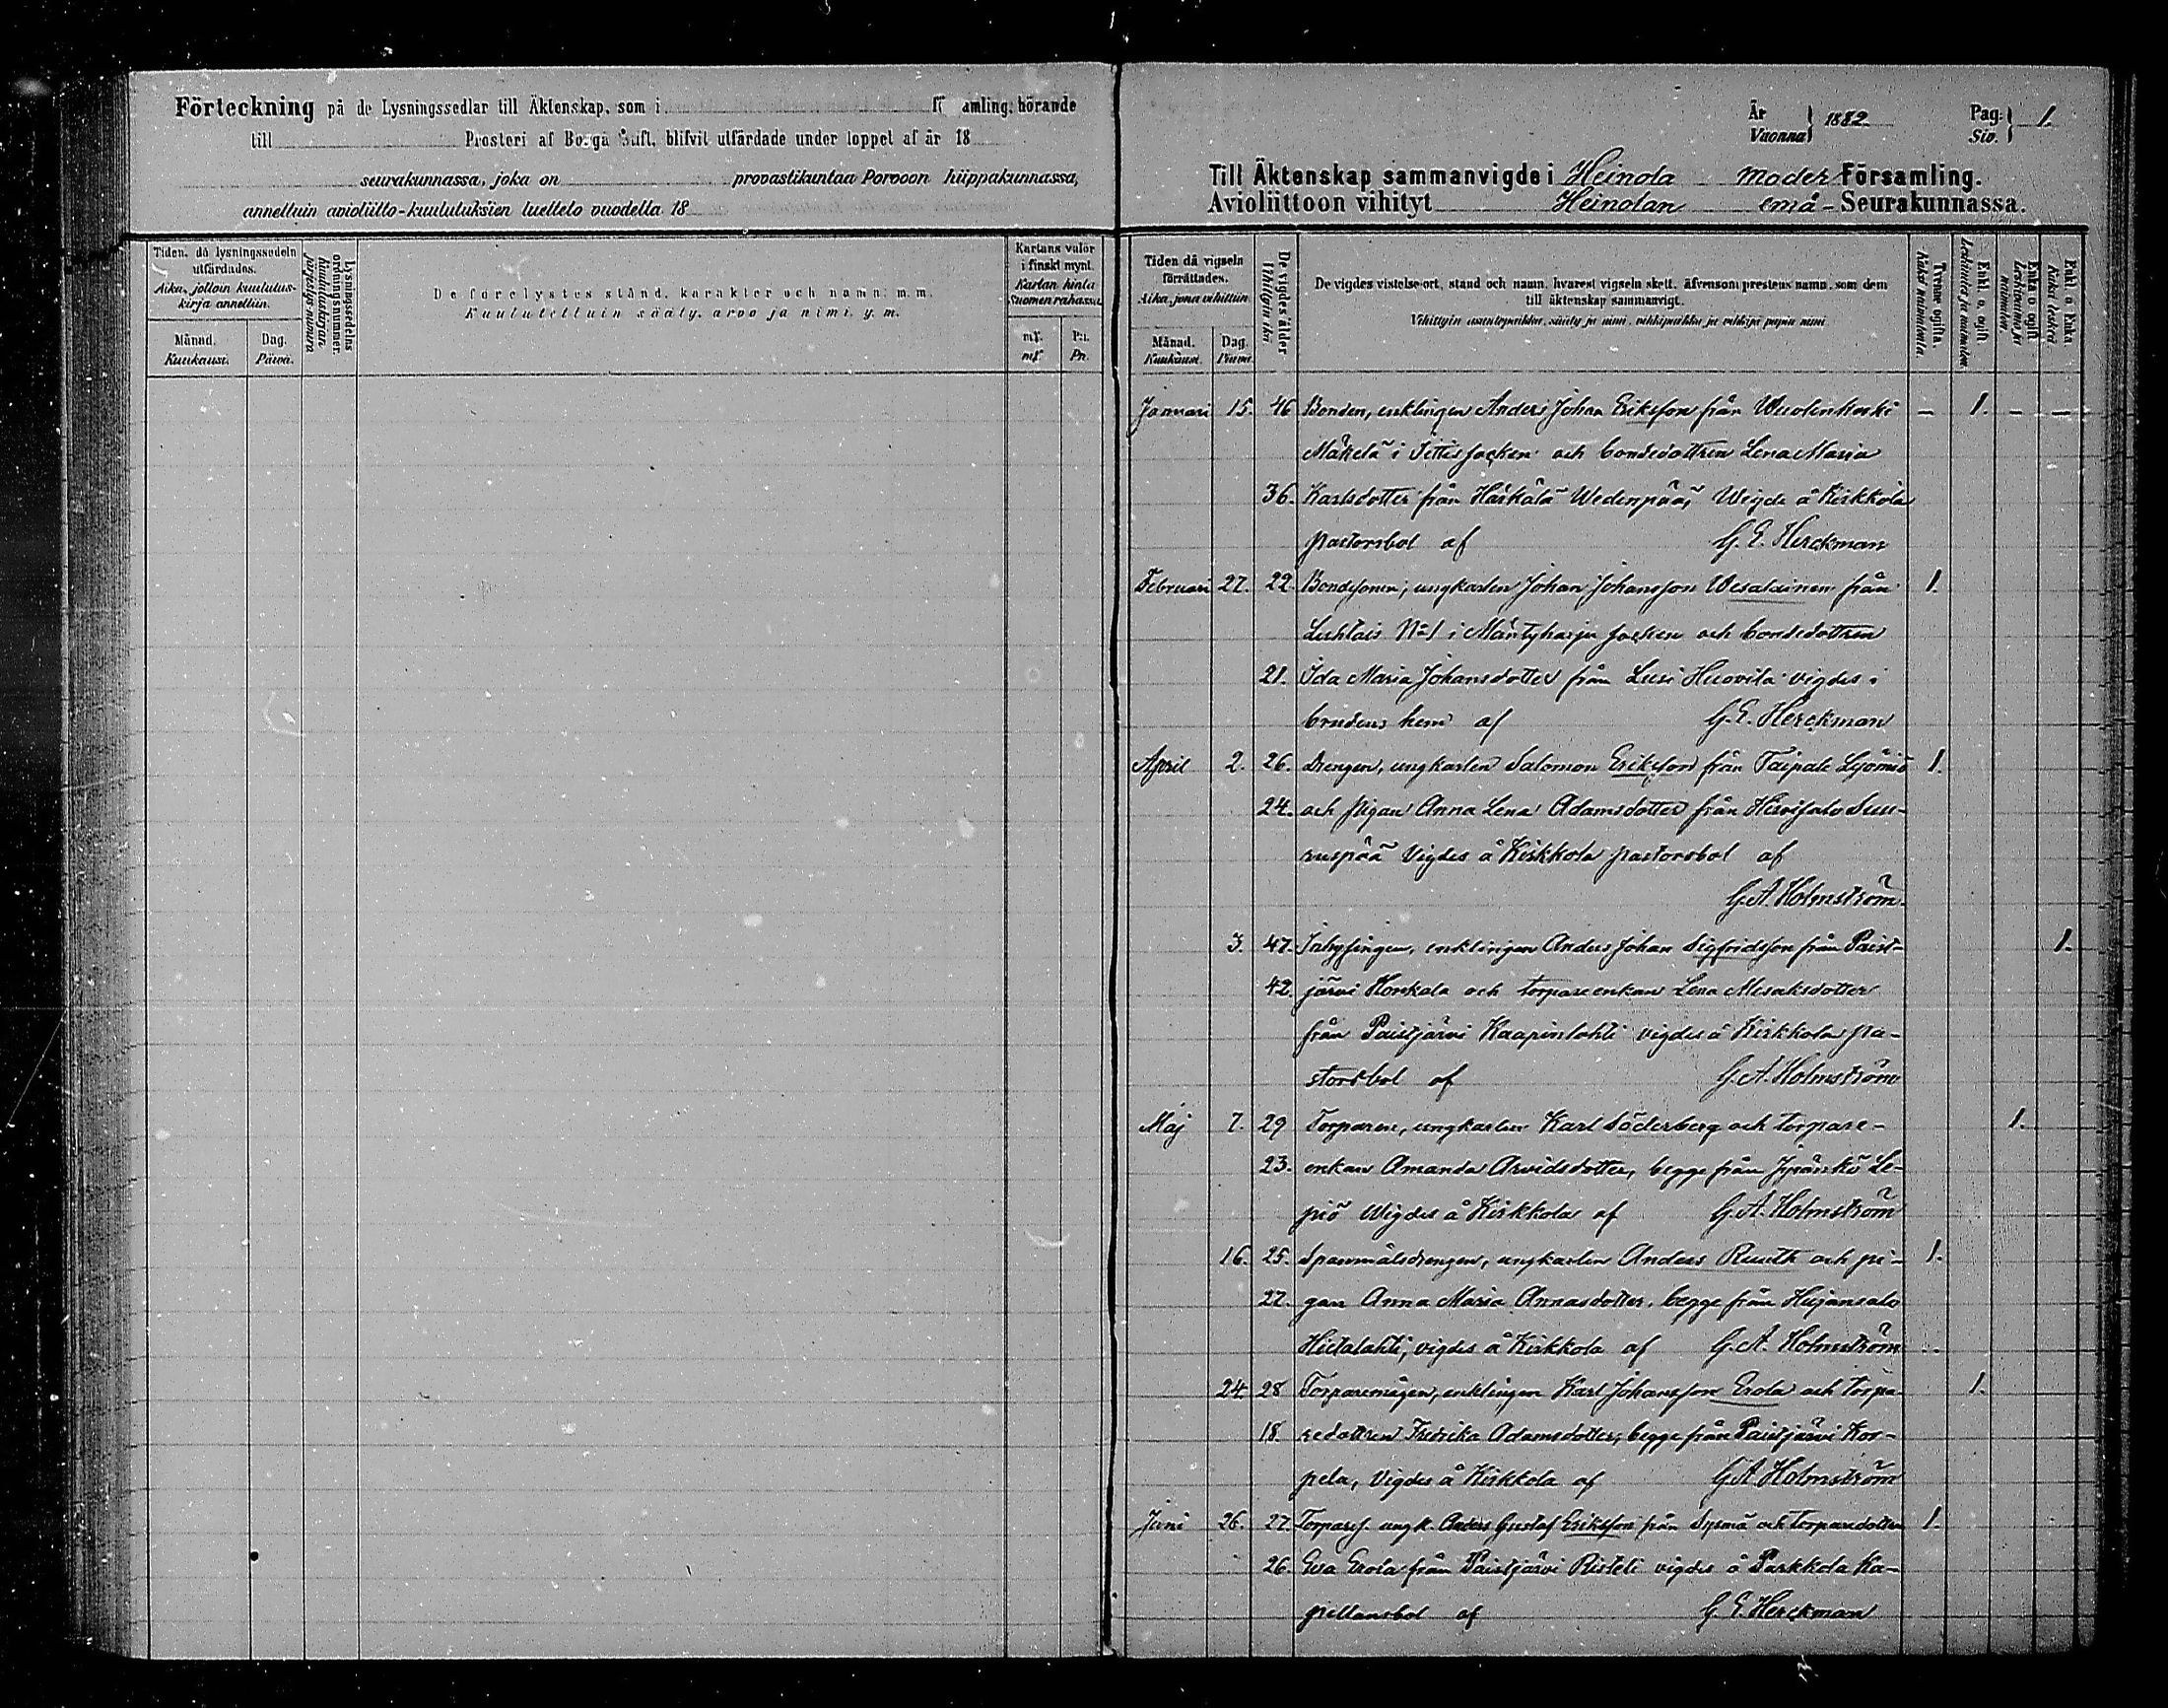 Förteckning på de Lysningssedlar till Äktenskap, som i amling, hörande
till Prosteri af Borgå Stift, blifvit utfärdade under loppet af år 18
seurakunnassa, joka on provastikuntaa Porvoon hiippakunnassa,
annettuin avioliitto-kuulutuksien luettelo vuodella 18
Tiden, då lysningssedeln utfärdades.
Aika, jolloin kuulutus-kirja annettiin.
Månad. Kuukausi.
Dag. Päivä.
Lysningssedelns ordningsnummer.
Kuulutuskirjan järjestys-numero
De förelystes stånd, karakter och namn m. m.
Kuulutettuin sääty, arvo ja nimi y. m.
Kartans valör i finskt mynt.
Kartan hinta Suomen rahassa.
mk. Pn.
År Vuonna 1882. Pag. Siv. 1.
Till Äktenskap sammanvigde i Heinola moder Församling.
Avioliittoon vihityt Heinolan emä- Seurakunnassa.
Tiden då vigseln förrättades.
Aika, jona vihittiin
Månad. Kuukausi.
Dag. Päivä.
De vigdes ålder
Vihittyin ikä
De vigdes vistelseort, stånd och namn, hvarest vigseln skett, äfvensom prestens namn, som dem
till äktenskap sammanvigt.
Vihittyin asuntopaikka, sääty ja nimi, vihkipaikka ja vihkijä papin nimi
Tvenne ogifta
Kaksi naimatonta.
Enkl. o. ogift
Leskimies ja naimaton.
Enka o. ogift
Leskivaimo ja naimaton.
Enkl. o. Enka
Kaksi leskeä
Januari 15. 46 Bonden, enklingen Anders Johan Eriksson från Wuolenkoski — 1. — —
Mäkelä i Iittis socken och bondedottren Lena Maria
36. Karlsdotter från Härkälä Wedenpää, Wigde å Kirkkola
pastorsbol af G. E. Herckman
Februari 27. 22. Bondesonen, ungkarlen Johan Johansson Wesalainen från 1.
Luhtais No 1 i Mäntyharju socken och bondedottren
21. Ida Maria Johansdotter från Lusi Huovila vigdes i
brudens hem af G. E. Herckman
April 2. 26. Drengen, ungkarlen Salomon Eriksson från Taipale 1.
24. och pigan Anna Lena Adamsdotter från Hirvisalo Suu-
ruspää Vigdes å Kirkkola pastorsbol af
G. A. Holmström.
3. 47. Inhysingen, enklingen Anders Johan Sigfridsson från Paist- 1.
42. järvi Honkala och torpareenkan Lena Misaksdotter
från Paistjärvi Kaapinlahti vigdes å Kirkkola pa-
storsbol af G. A. Holmström
Maj 7. 29 Torparen, ungkarlen Karl Söderberg och torpare- 1.
23. enkan Amanda Arvidsdotter, begge från Jyränkö Le-
piö Wigdes å Kirkkola af G. A. Holmström
16. 25. Spanmålsdrengen, ungkarlen Anders Ruuth och pi- 1.
27. gan Anna Maria Annasdotter, begge från Heijansalo
Hietalahti, vigdes å Kirkkola af G. A. Holmström
24. 28 Torparemågen, enklingen Karl Johansson Erola och torpa 1.
18. redottren Fredrika Adamsdotter, begge från Paistjärvi Kor-
pela, Vigdes å Kirkkola af G. A. Holmström
Juni 26. 27. Torpares. ungk. Anders Gustaf Eriksson från Sysmä och torparedottren 1.
26. Eva Erola från Paistjärvi Risteli vigdes å Parkkola Ka-
pellansbol af G. E. Herckman